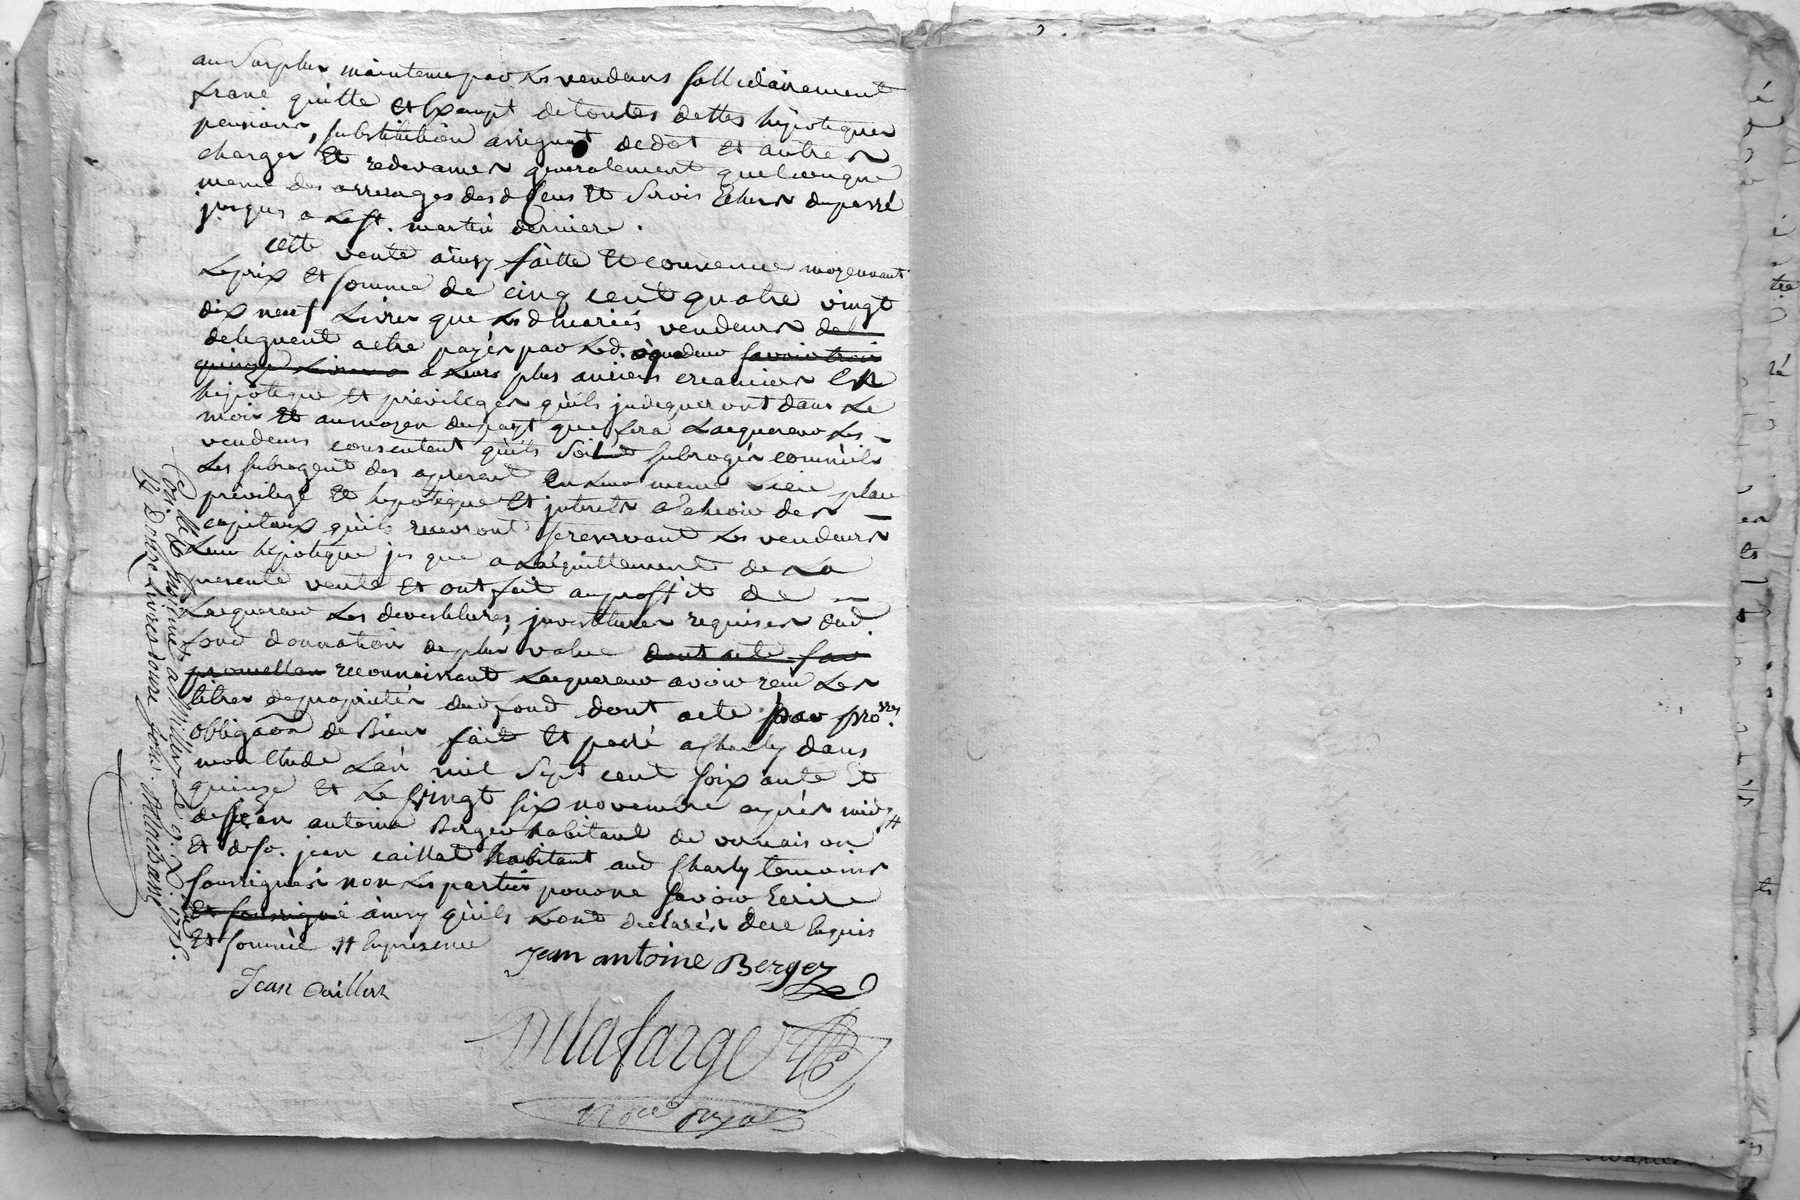 au Surplus maintenu par Les vendeurs sollidairement
franc quitte et Exempt de toutes dettes hipoteques
pensions, substitution assignat de dot et autres
charges Et redevances generalement quelconque
meme des arrerages desd Cens Et Servis Echus du passé
jusques a La St. martin derniere.
cette vente ainsy faitte Et convenue moyennant
Le prix Et somme de cinq cent quatre vingt
dix neuf Livres que Lesd mariés vendeurs
deleguent a etre payés par Led. aquereur savoir trois
quinze Livres a Leurs plus anciens creanciers En
hipoteque Et privileges qu'ils judiqueront dans Le
mois Et au moyen du payt que fera Lacquereur Les
vendeurs consentent qu'ils soient subrogés comm'ils
Les subrogent des apresent En Leur meme Lieu place
privilege Et hipoteque Et jnterets a Echeoir des
capitaux qu'ils recevront se reservant Les vendeurs
Leur hipoteque jusque a Lacquittement de La
presente vente Et ont fait au proffit de
Lacquereur Les devestitures, jnvestitures requises dud.
fond donnation de plus value dont acte par
promettan reconnoissant Lacquereur avoir reçu Les
titres de proprietés dud fond dont acte par pro.
obligaon de Biens fait Et passé a Charly dans
mon Etude Lan mil Sept cent soixante Et
quinze Et Le vingt six novembre après midy #
de Sr. jean antoine Berger habitant de vernaison
Et de Sr. jean caillat habitant aud Charly temoins
soussignés non Les parties pour ne savoir Ecrire
Et soussigné ainsy qu'ils Lont declarés de ce Enquis
Et sommée. # En presence
Jean antoine Berger
Jean Caillat
Delafarge
Nore Royal
Con.lé & Insinué a Millery Le 9. X.bre 1775.
R. Douze Livres douze sols.